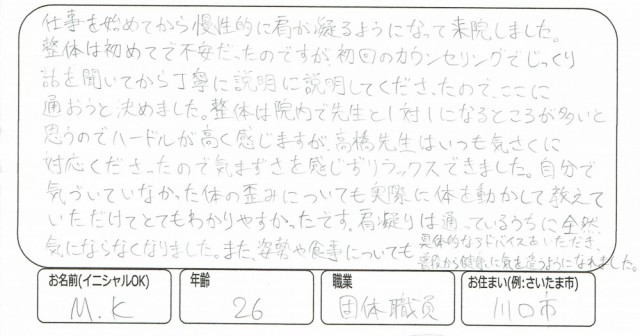 仕事を始めてから慢性的に肩が凝るようになって来院しました。
整体は初めてで不安だったのですが、初回のカウンセリングでじっくり
話を聞いてから丁寧に説明に説明してくださったので、ここに
通おうと決めました。整体は院内で先生と1対1になるところが多いと
思うのでハードルが高く感じますが、高橋先生はいつも気さくに
対応くださったので気まずさを感じずリラックスできました。自分で
気づいていなかった体の歪みについても実際に体を動かして教えて
いただけてとてもわかりやすかったです。肩凝りは通っているうちに全然
気にならなくなりました。また、姿勢や食事についても具体的なアドバイスをいただき、
普段から健康に気を遣うようになれました。
お名前(イニシャルOK) 年齢 職業 お住まい(例:さいたま市)
M.K 26 団体職員 川口市